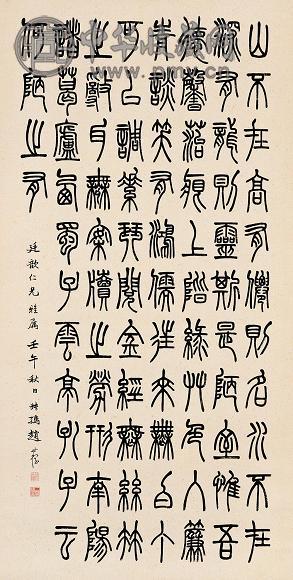 山不在高有僊則名水不在
深有龍則靈斯是陋室惟吾
德馨苔痕上階綠艸色入簾
青談笑有鴻儒往來無白丁
可以調素琴閱金經無絲竹
之亂耳無案牘之勞形南陽
諸葛廬西蜀子雲亭孔子云
何陋之有
仁兄雅屬壬午秋日叔孺趙時棡